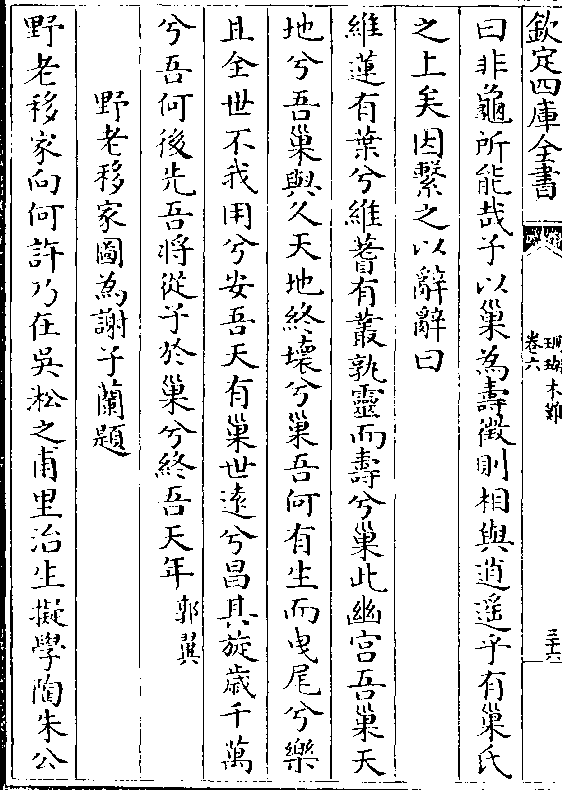 欽定四庫全書
珊瑚木難
卷六
三十六
曰非龜所能哉子以巢為壽徵則相與逍遥乎有巢氏
之上矣因繫之以辭辭曰
維蓮有葉兮維蓍有叢孰靈而壽兮巢此幽宫吾巢天
地兮吾巢與久天地終壞兮巢吾何有生而曳尾兮樂
且全世不我用兮安吾天有巢世逺兮曷其旋歳千萬
兮吾何後先吾將從子於巢兮終吾天年郭翼
野老移家圖為謝子蘭題
野老移家向何許乃在吳淞之甫里治生擬學陶朱公